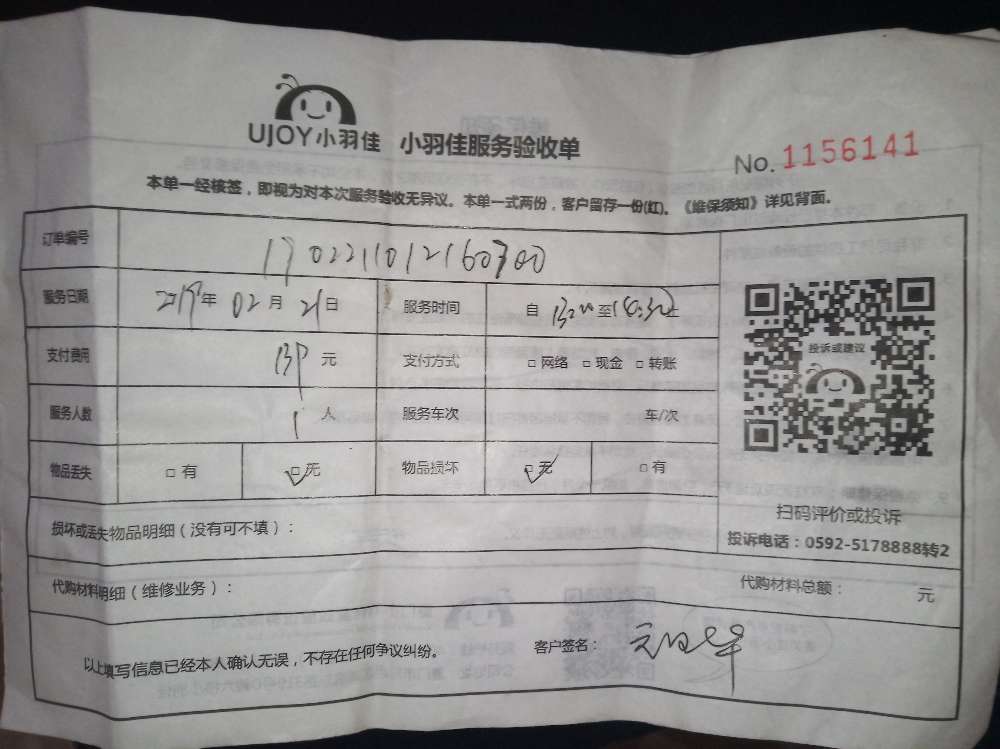 UJOY小羽佳 小羽佳服务验收单
No. 1156141
本单一经核签，即视为对本次服务验收无异议。本单一式两份，客户留存一份(红)。《维保须知》详见背面。
订单编号
服务日期 年 02 月 21 日 服务时间 自 至 止
投诉或建议
支付费用 139 元 支付方式 □ 网络 □ 现金 □ 转账
服务人数 1 人 服务车次 车/次
物品丢失 □ 有 □ 无 物品损坏 □ 无 □ 有
扫码评价或投诉
投诉电话：0592-5178888转2
损坏或丢失物品明细（没有可不填）：
代购材料明细（维修业务）： 代购材料总额： 元
以上填写信息已经本人确认无误，不存在任何争议纠纷。 客户签名：